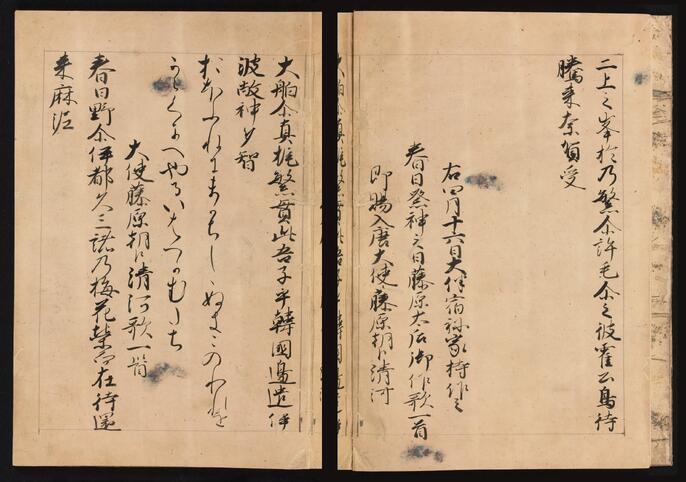 二上之峯於乃繁尓許毛尓之彼霍公鳥待
騰来奈賀受
右四月十六日大伴宿祢家持作之
春日祭神之日藤原太后御作歌一首
即賜入唐大使藤原朝臣清河
大舶尓真梶繁貫此吾子乎韓國邊遣伊
波敝神多智
おほふねにまかちしゝぬきこのわこを
からくにへやるいはへかみたち
大使藤原朝臣清河歌一首
春日野尓伊都久三諸乃梅花榮而在待還
来麻泥